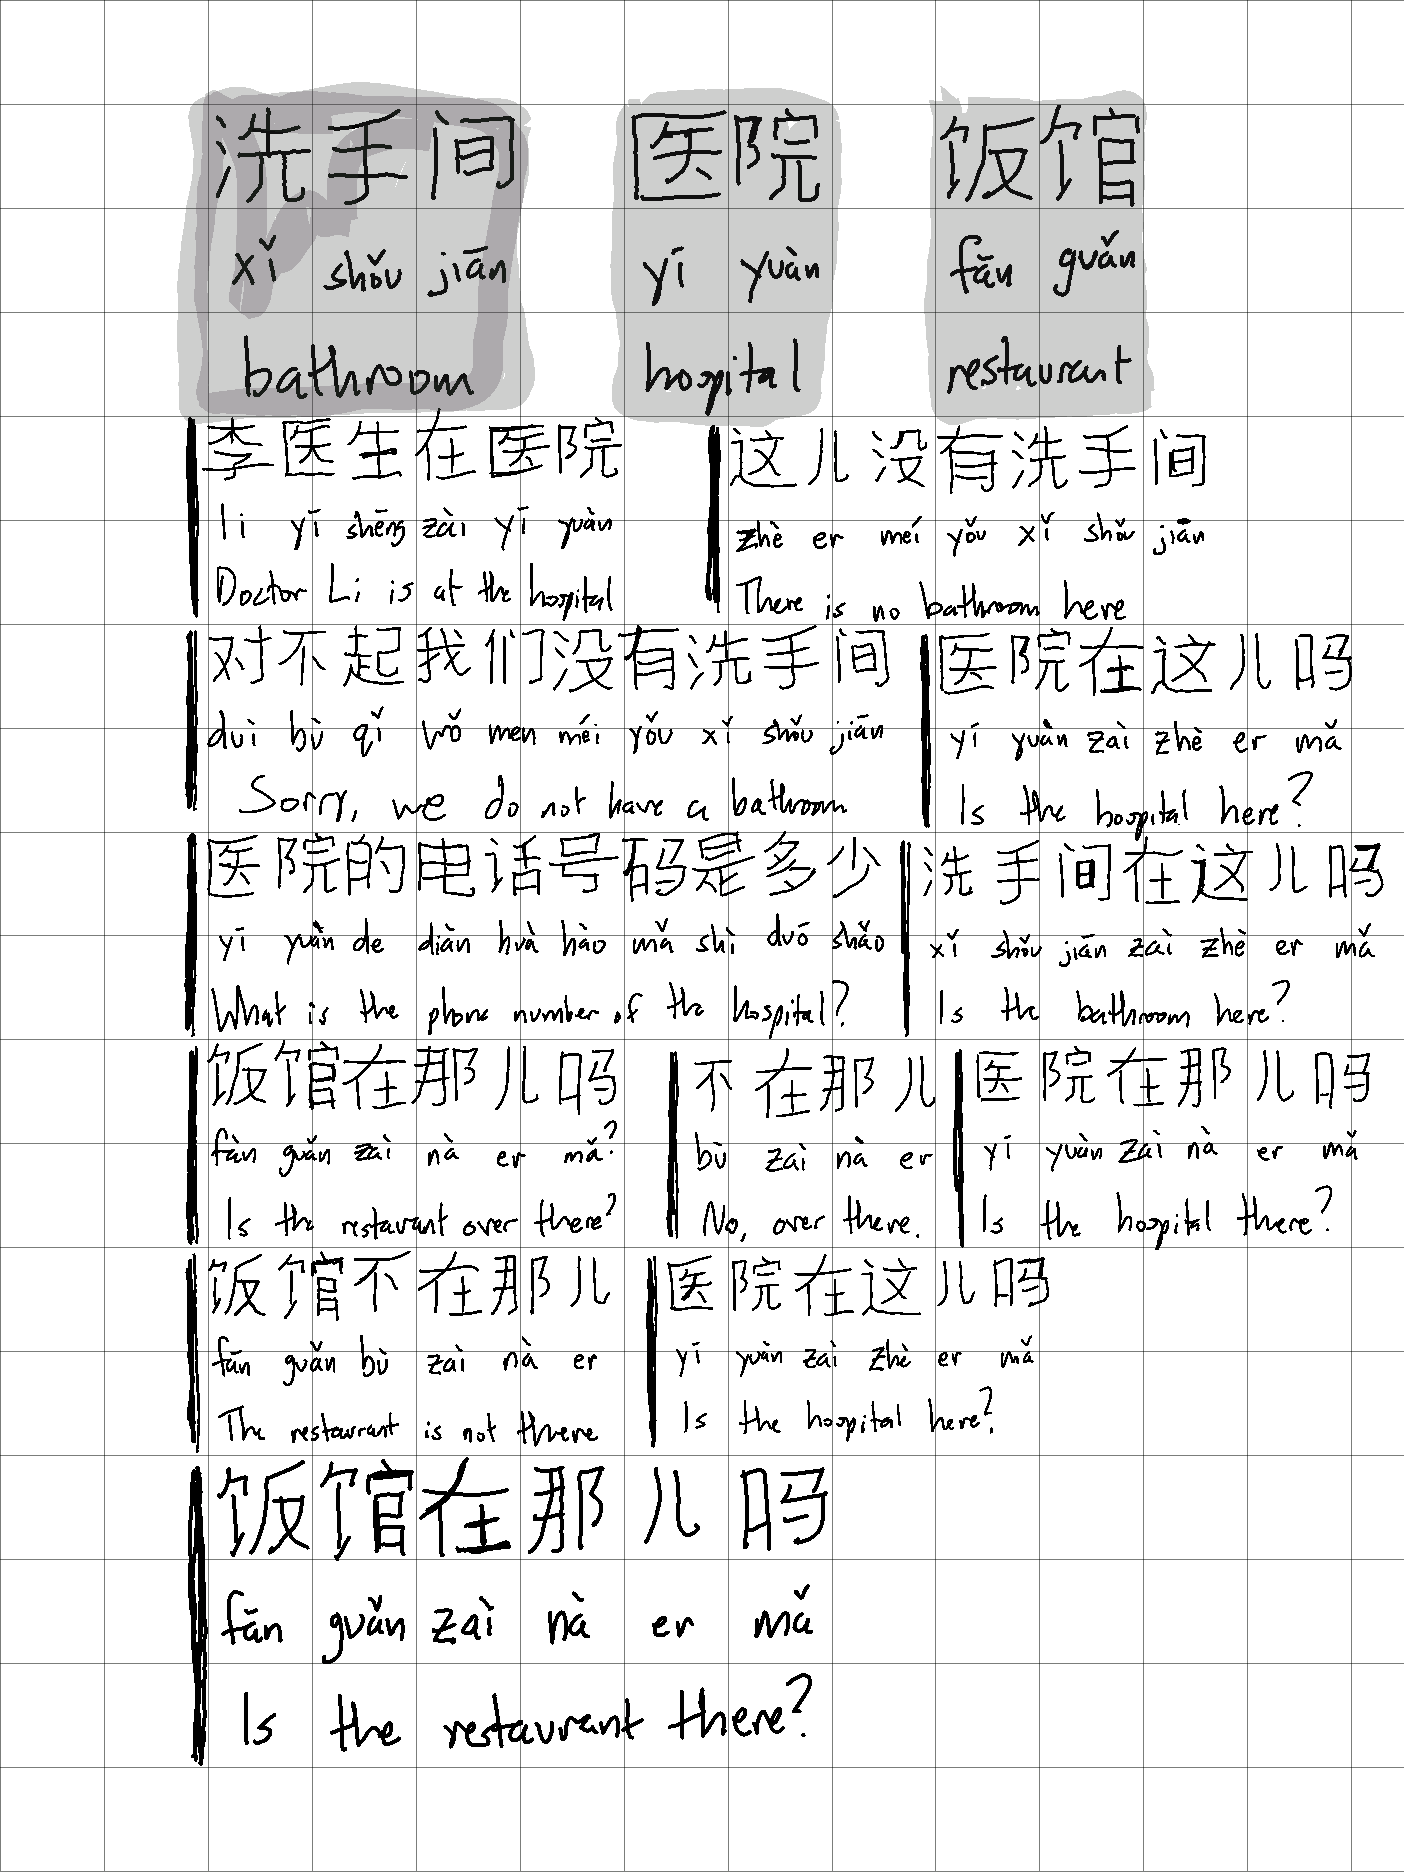 洗手间 医院 饭馆
xǐ shǒu jiān yī yuàn fān guǎn
bathroom hospital restaurant
李医生在医院 这儿没有洗手间
li yī shēng zài yī yuàn zhè er meí yǒu xǐ shǒu jiān
Doctor Li is at the hospital There is no bathroom here
对不起我们没有洗手间 医院在这儿吗
duì bù qǐ wǒ men méi yǒu xǐ shǒu jiān yī yuàn zaì zhè er mǎ
Sorry, we do not have a bathroom Is the hospital here?
医院的电话号码是多少 洗手间在这儿吗
yī yuàn de diàn huà hào mǎ shì duō shǎo xǐ shǒu jiān zaì zhè er mǎ
What is the phone number of the hospital? Is the bathroom here?
饭馆在那儿吗 不在那儿 医院在那儿吗
fàn guǎn zaì nà er mǎ? bù zaì nà er yī yuàn zaì nà er mǎ
Is the restaurant over there? No, over there. Is the hospital there?
饭馆不在那儿 医院在这儿吗
fān guǎn bù zaì nà er yī yuàn zaì zhè er mǎ
The restaurant is not there Is the hospital here?
饭馆在那儿吗
fān guǎn zaì nà er mǎ
Is the restaurant there?